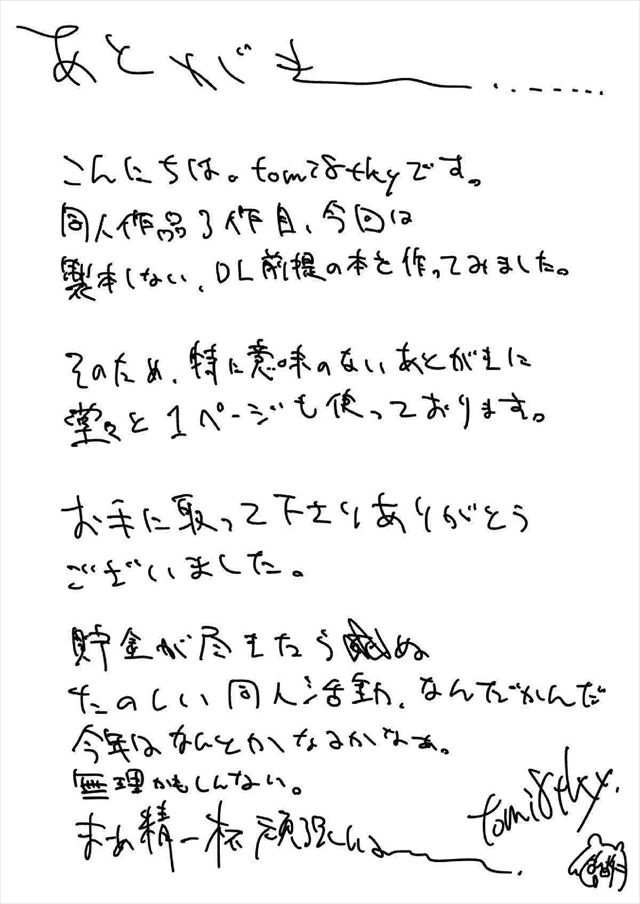 あとがき
こんにちは。tomi8tkyです。
同人作品3作目、今回は
製本しない、DL前提の本を作ってみました。
そのため、特に意味のないあとがきに
堂々と1ページも使っております。
お手に取って下さりありがとう
ございました。
貯金が尽きたら死ぬ
たのしい同人活動、なんだかんだ
今年はなんとかなるかなぁ。
無理かもしんない。
まあ精一杯頑張るんよ
tomi8tky.